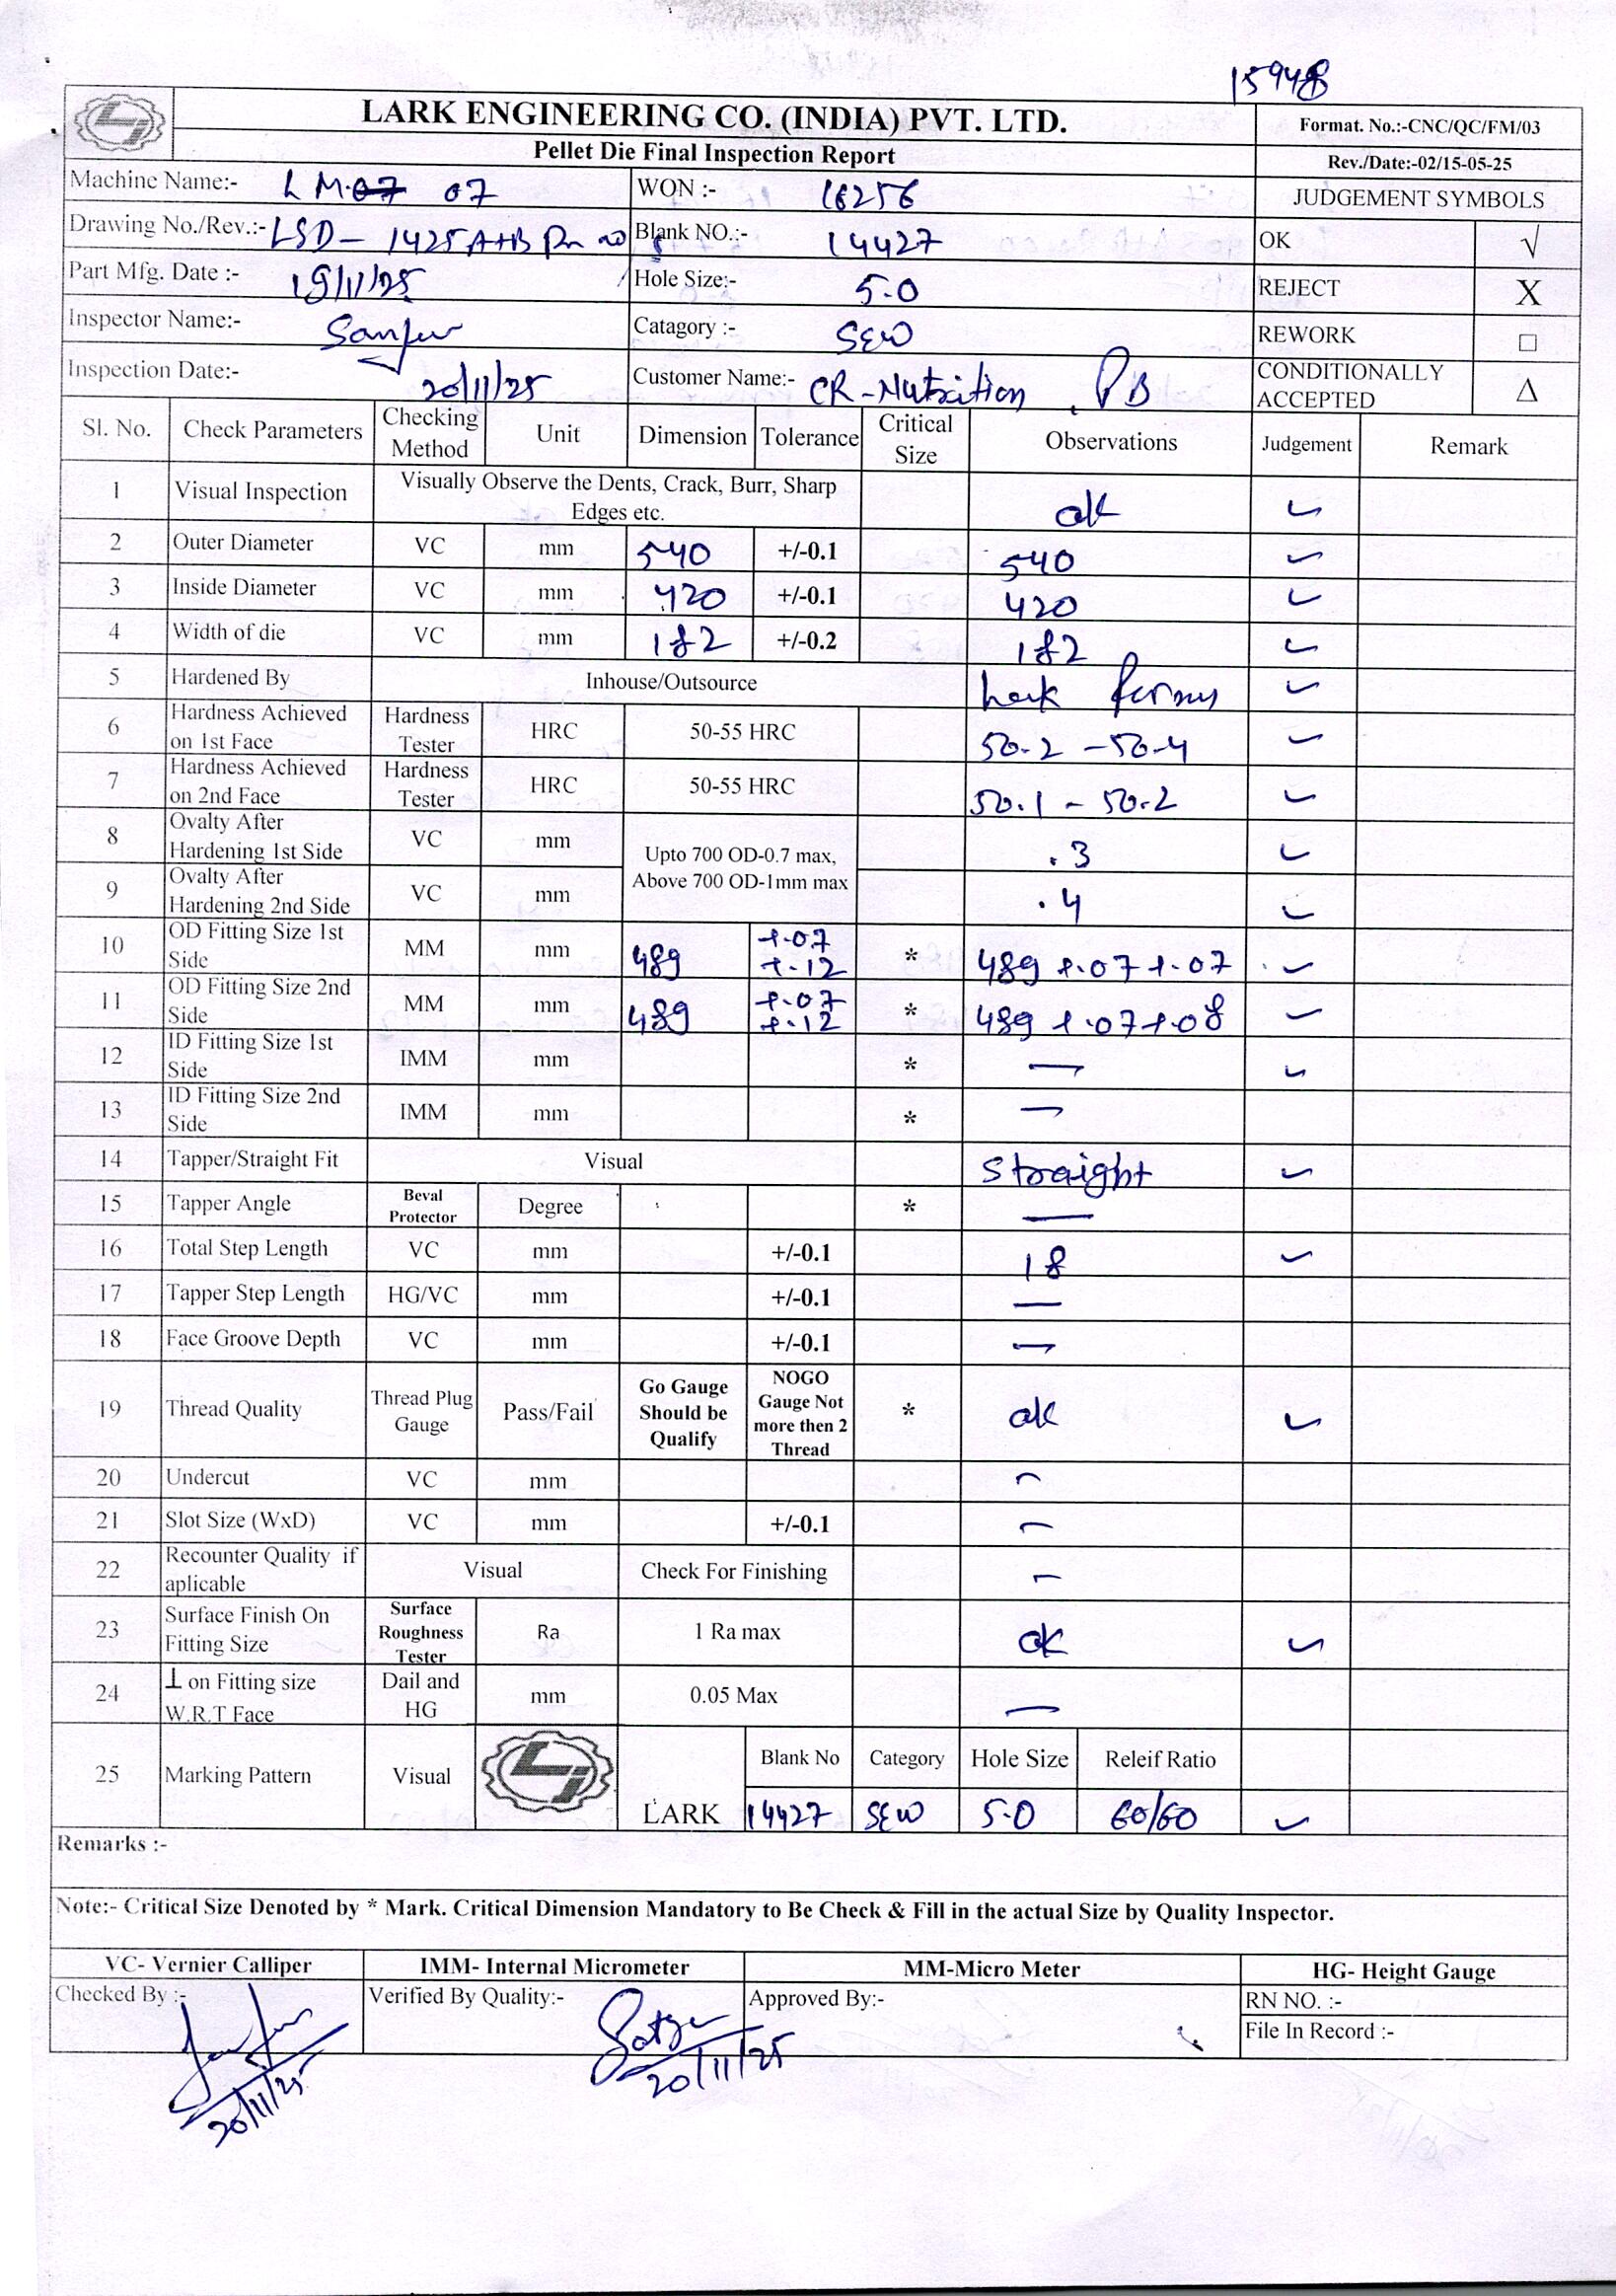 15948
LARK ENGINEERING CO. (INDIA) PVT. LTD.
Format. No.:-CNC/QC/FM/03
Pellet Die Final Inspection Report
Rev./Date:-02/15-05-25
Machine Name:- LM 07
WON :- 16256
JUDGEMENT SYMBOLS
Drawing No./Rev.:- LSD- 1425 A+B
Blank NO.:- 14427
OK √
Part Mfg. Date :- 19/11/25
Hole Size:- 5.0
REJECT X
Inspector Name:-
Catagory :- SEW
REWORK □
Inspection Date:- 20/11/25
Customer Name:- CR-Nutrition, PB
CONDITIONALLY ACCEPTED Δ
Sl. No. Check Parameters Checking Method Unit Dimension Tolerance Critical Size Observations Judgement Remark
1 Visual Inspection Visually Observe the Dents, Crack, Burr, Sharp Edges etc. ok ✓
2 Outer Diameter VC mm 540 +/-0.1 540 ✓
3 Inside Diameter VC mm 420 +/-0.1 420 ✓
4 Width of die VC mm 182 +/-0.2 182 ✓
5 Hardened By Inhouse/Outsource ✓
6 Hardness Achieved on 1st Face Hardness Tester HRC 50-55 HRC 50.2 - 50.4 ✓
7 Hardness Achieved on 2nd Face Hardness Tester HRC 50-55 HRC 50.1 - 50.2 ✓
8 Ovalty After Hardening 1st Side VC mm Upto 700 OD-0.7 max, Above 700 OD-1mm max .3 ✓
9 Ovalty After Hardening 2nd Side VC mm .4 ✓
10 OD Fitting Size 1st Side MM mm 489 +.07 +.12 * 489 +.07 +.07 ✓
11 OD Fitting Size 2nd Side MM mm 489 +.07 +.12 * 489 +.07 +.08 ✓
12 ID Fitting Size 1st Side IMM mm * — ✓
13 ID Fitting Size 2nd Side IMM mm * —
14 Tapper/Straight Fit Visual Straight ✓
15 Tapper Angle Beval Protector Degree * —
16 Total Step Length VC mm +/-0.1 18 ✓
17 Tapper Step Length HG/VC mm +/-0.1 —
18 Face Groove Depth VC mm +/-0.1 —
19 Thread Quality Thread Plug Gauge Pass/Fail Go Gauge Should be Qualify NOGO Gauge Not more then 2 Thread * ok ✓
20 Undercut VC mm —
21 Slot Size (WxD) VC mm +/-0.1 —
22 Recounter Quality if aplicable Visual Check For Finishing —
23 Surface Finish On Fitting Size Surface Roughness Tester Ra 1 Ra max ok ✓
24 ⊥ on Fitting size W.R.T Face Dail and HG mm 0.05 Max —
25 Marking Pattern Visual LARK Blank No Category Hole Size Releif Ratio
14427 SEW 5.0 60/60 ✓
Remarks :-
Note:- Critical Size Denoted by * Mark. Critical Dimension Mandatory to Be Check & Fill in the actual Size by Quality Inspector.
VC- Vernier Calliper IMM- Internal Micrometer MM-Micro Meter HG- Height Gauge
Checked By :- Verified By Quality:- Approved By:- RN NO. :-
File In Record :-
20/11/25 20/11/25